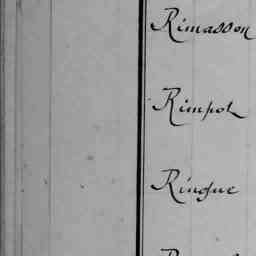 Rimasson
Rimpot
Ringue